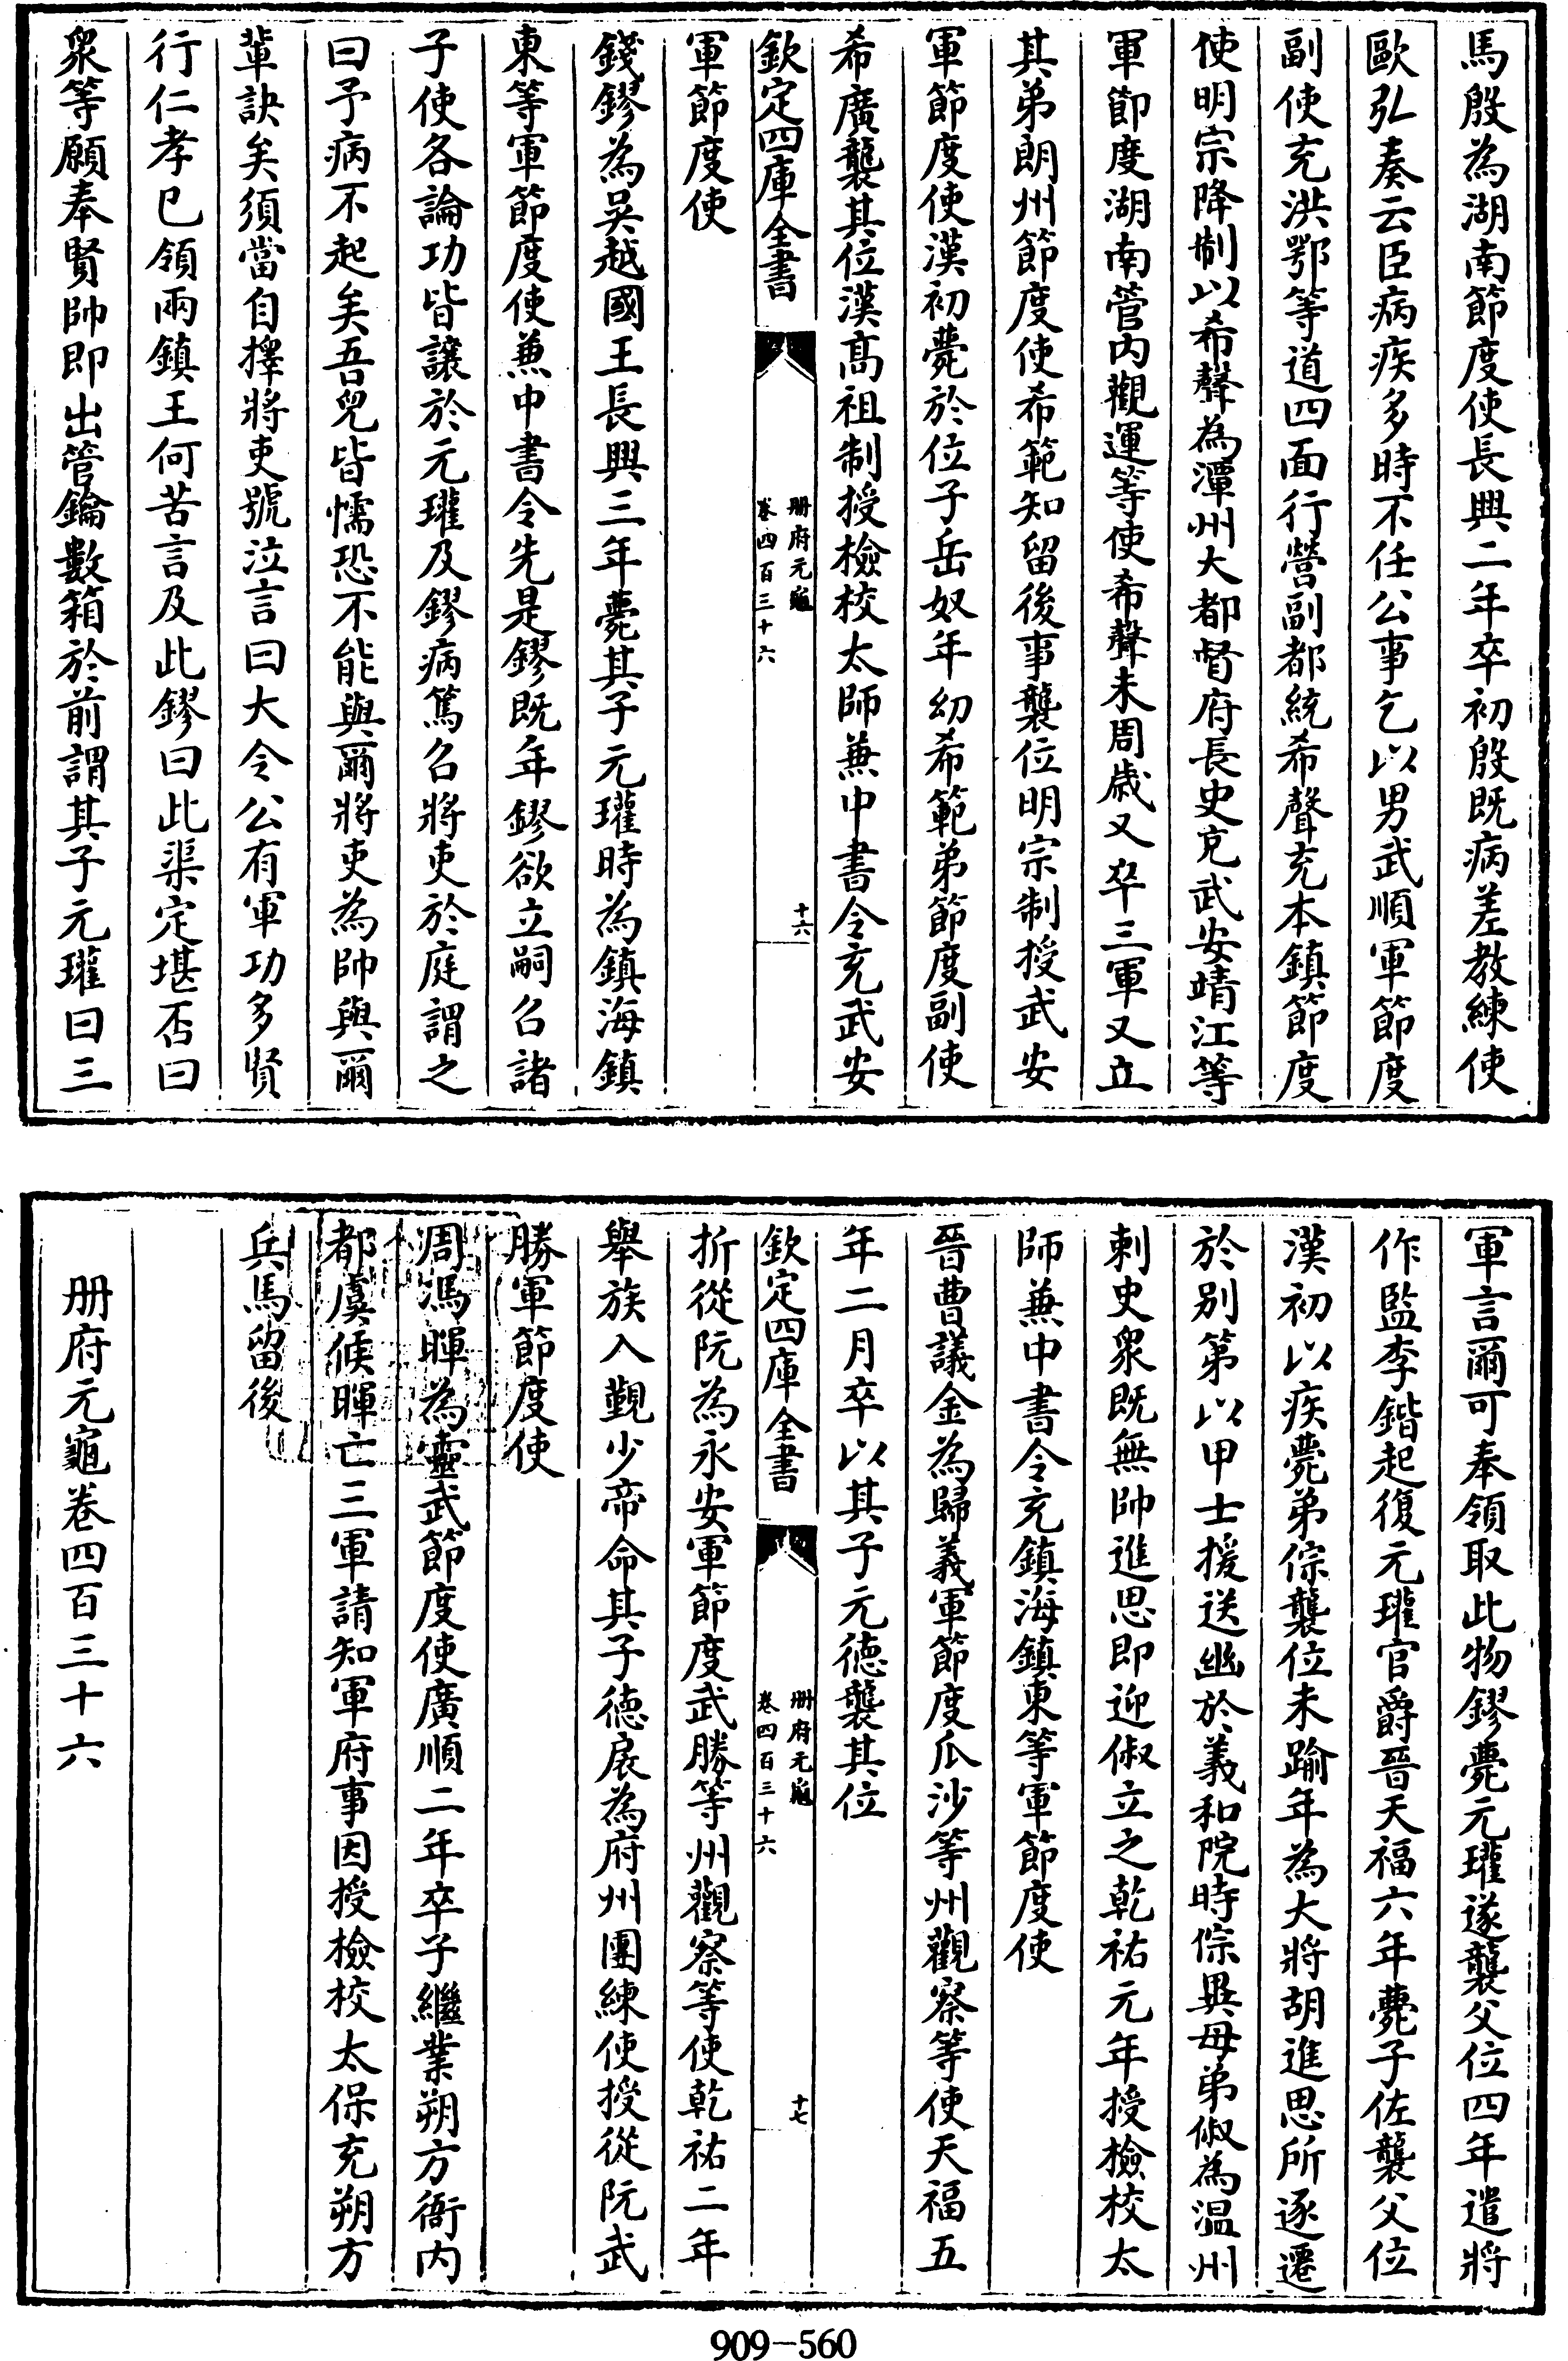 馬殷為湖南節度使長興二年卒初殷既病差教練使
歐弘奏云臣病疾多時不任公事乞以男武順軍節度
副使充洪鄂等道四面行營副都統希聲充本鎮節度
使明宗降制以希聲為潭州大都督府長史充武安靖江等
軍節度湖南管内觀運等使希聲未周歲又卒三軍又立
其弟朗州節度使希範知留後事襲位明宗制授武安
軍節度使漢初薨於位子岳奴年幼希範弟節度副使
希廣襲其位漢髙祖制授檢校太師兼中書令充武安
欽定四庫全書
冊府元龜
卷四百三十六
十六
軍節度使
錢鏐為吳越國王長興三年薨其子元瓘時為鎮海鎮
東等軍節度使兼中書令先是鏐既年鏐欲立嗣召諸
子使各論功皆讓於元瓘及鏐病篤召將吏於庭謂之
曰予病不起矣吾兒皆懦恐不能與爾將吏為帥與爾
輩訣矣須當自擇將吏號泣言曰大令公有軍功多賢
行仁孝已領兩鎮王何苦言及此鏐曰此渠定堪否曰
衆等願奉賢帥即出管鑰數箱於前謂其子元瓘曰三
軍言爾可奉領取此物鏐薨元瓘遂襲父位四年遣將
作監李鍇起復元瓘官爵晉天福六年薨子佐襲父位
漢初以疾薨弟倧襲位未踰年為大將胡進思所逐遷
於別第以甲士援送幽於義和院時倧異母弟俶為温州
刺史衆既無帥進思即迎俶立之乾祐元年授檢校太
師兼中書令充鎮海鎮東等軍節度使
晉曹議金為歸義軍節度瓜沙等州觀察等使天福五
年二月卒以其子元德襲其位
欽定四庫全書
冊府元龜
卷四百三十六
十七
折從阮為永安軍節度武勝等州觀察等使乾祐二年
舉族入覲少帝命其子德扆為府州團練使授從阮武
勝軍節度使
周馮暉為靈武節度使廣順二年卒子繼業朔方衙内
都虞候暉亡三軍請知軍府事因授檢校太保充朔方
兵馬留後
冊府元龜卷四百三十六
909-560